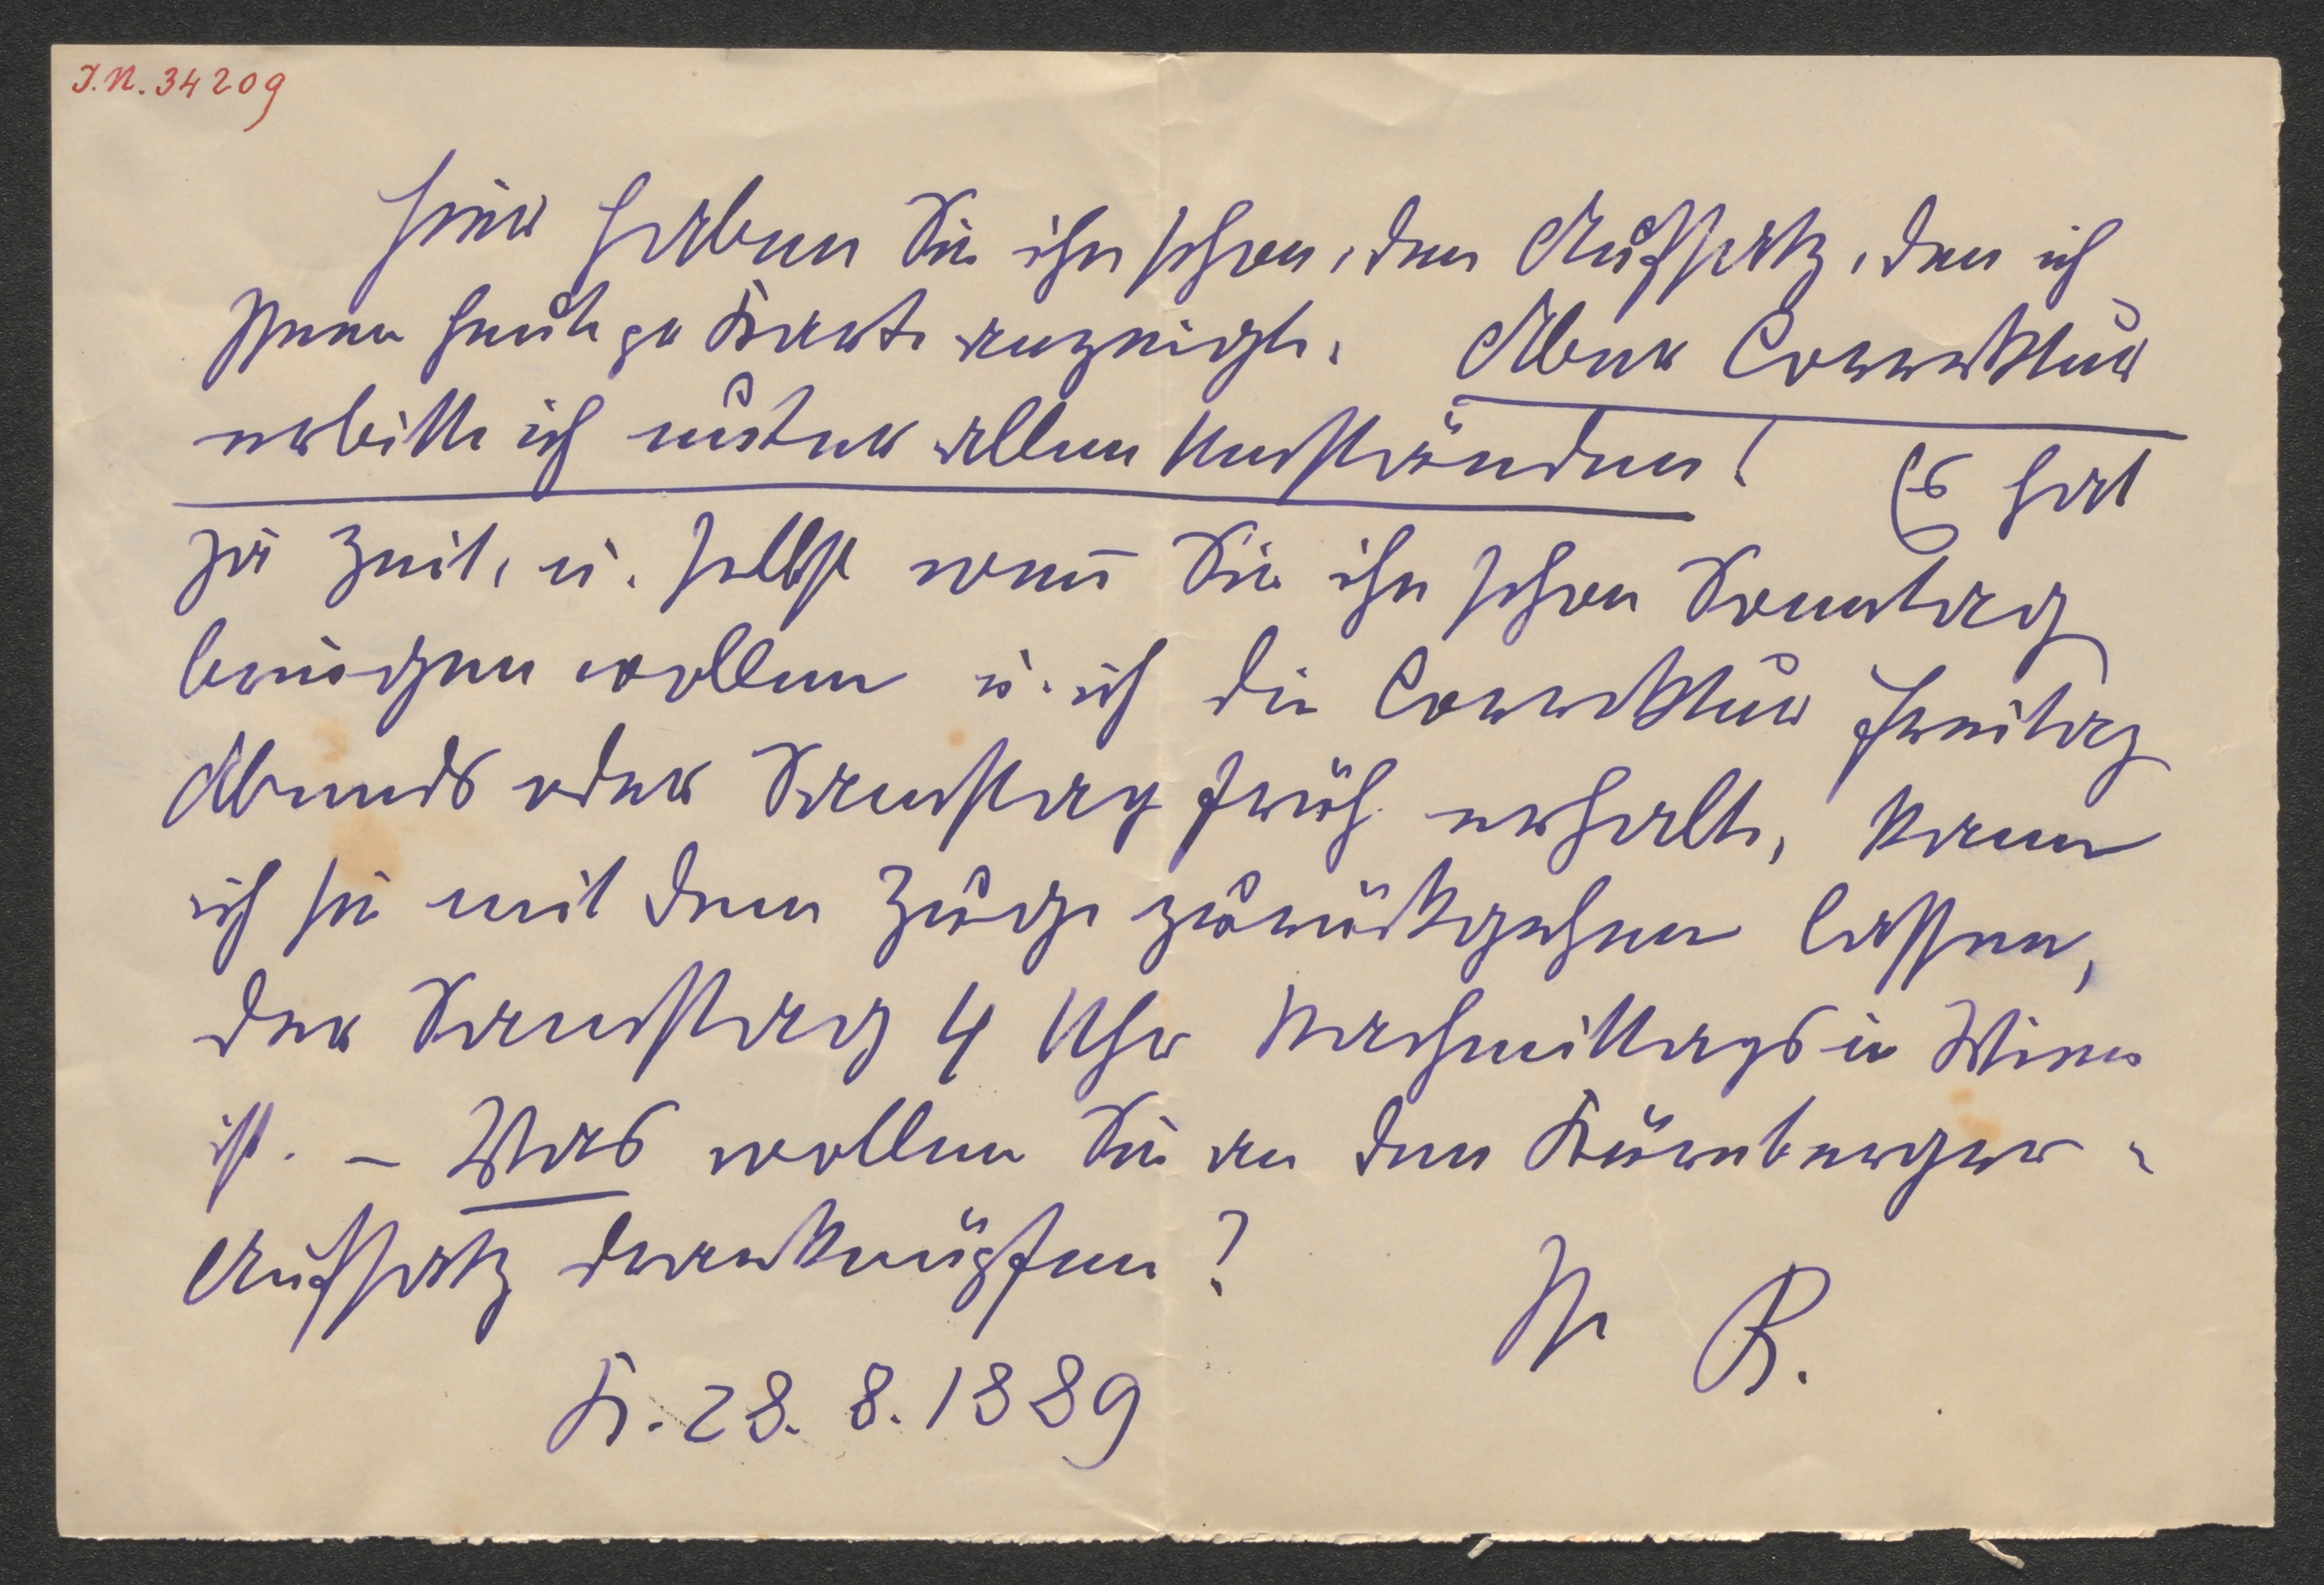 I.N. 34209
Hier haben Sie ihn schon, den Aufsatz, den ich
Ihnen heute pr Karte anzeigte. Aber Correktur
erbitte ich unter allen Umständen! Es hat
ja Zeit, u. selbst wenn Sie ihn schon Sonntag
bringen wollen u. ich die Correktur Freitag
Abends oder Samstag früh erhalte, kann
ich sie mit dem Zuge zurückgehen lassen,
der Samstag 4 Uhr Nachmittags in Wien
ist. – Was wollen Sie an den Kürnberger-
Aufsatz daranknüpfen?
Ihr R.
K. 28. 8. 1889